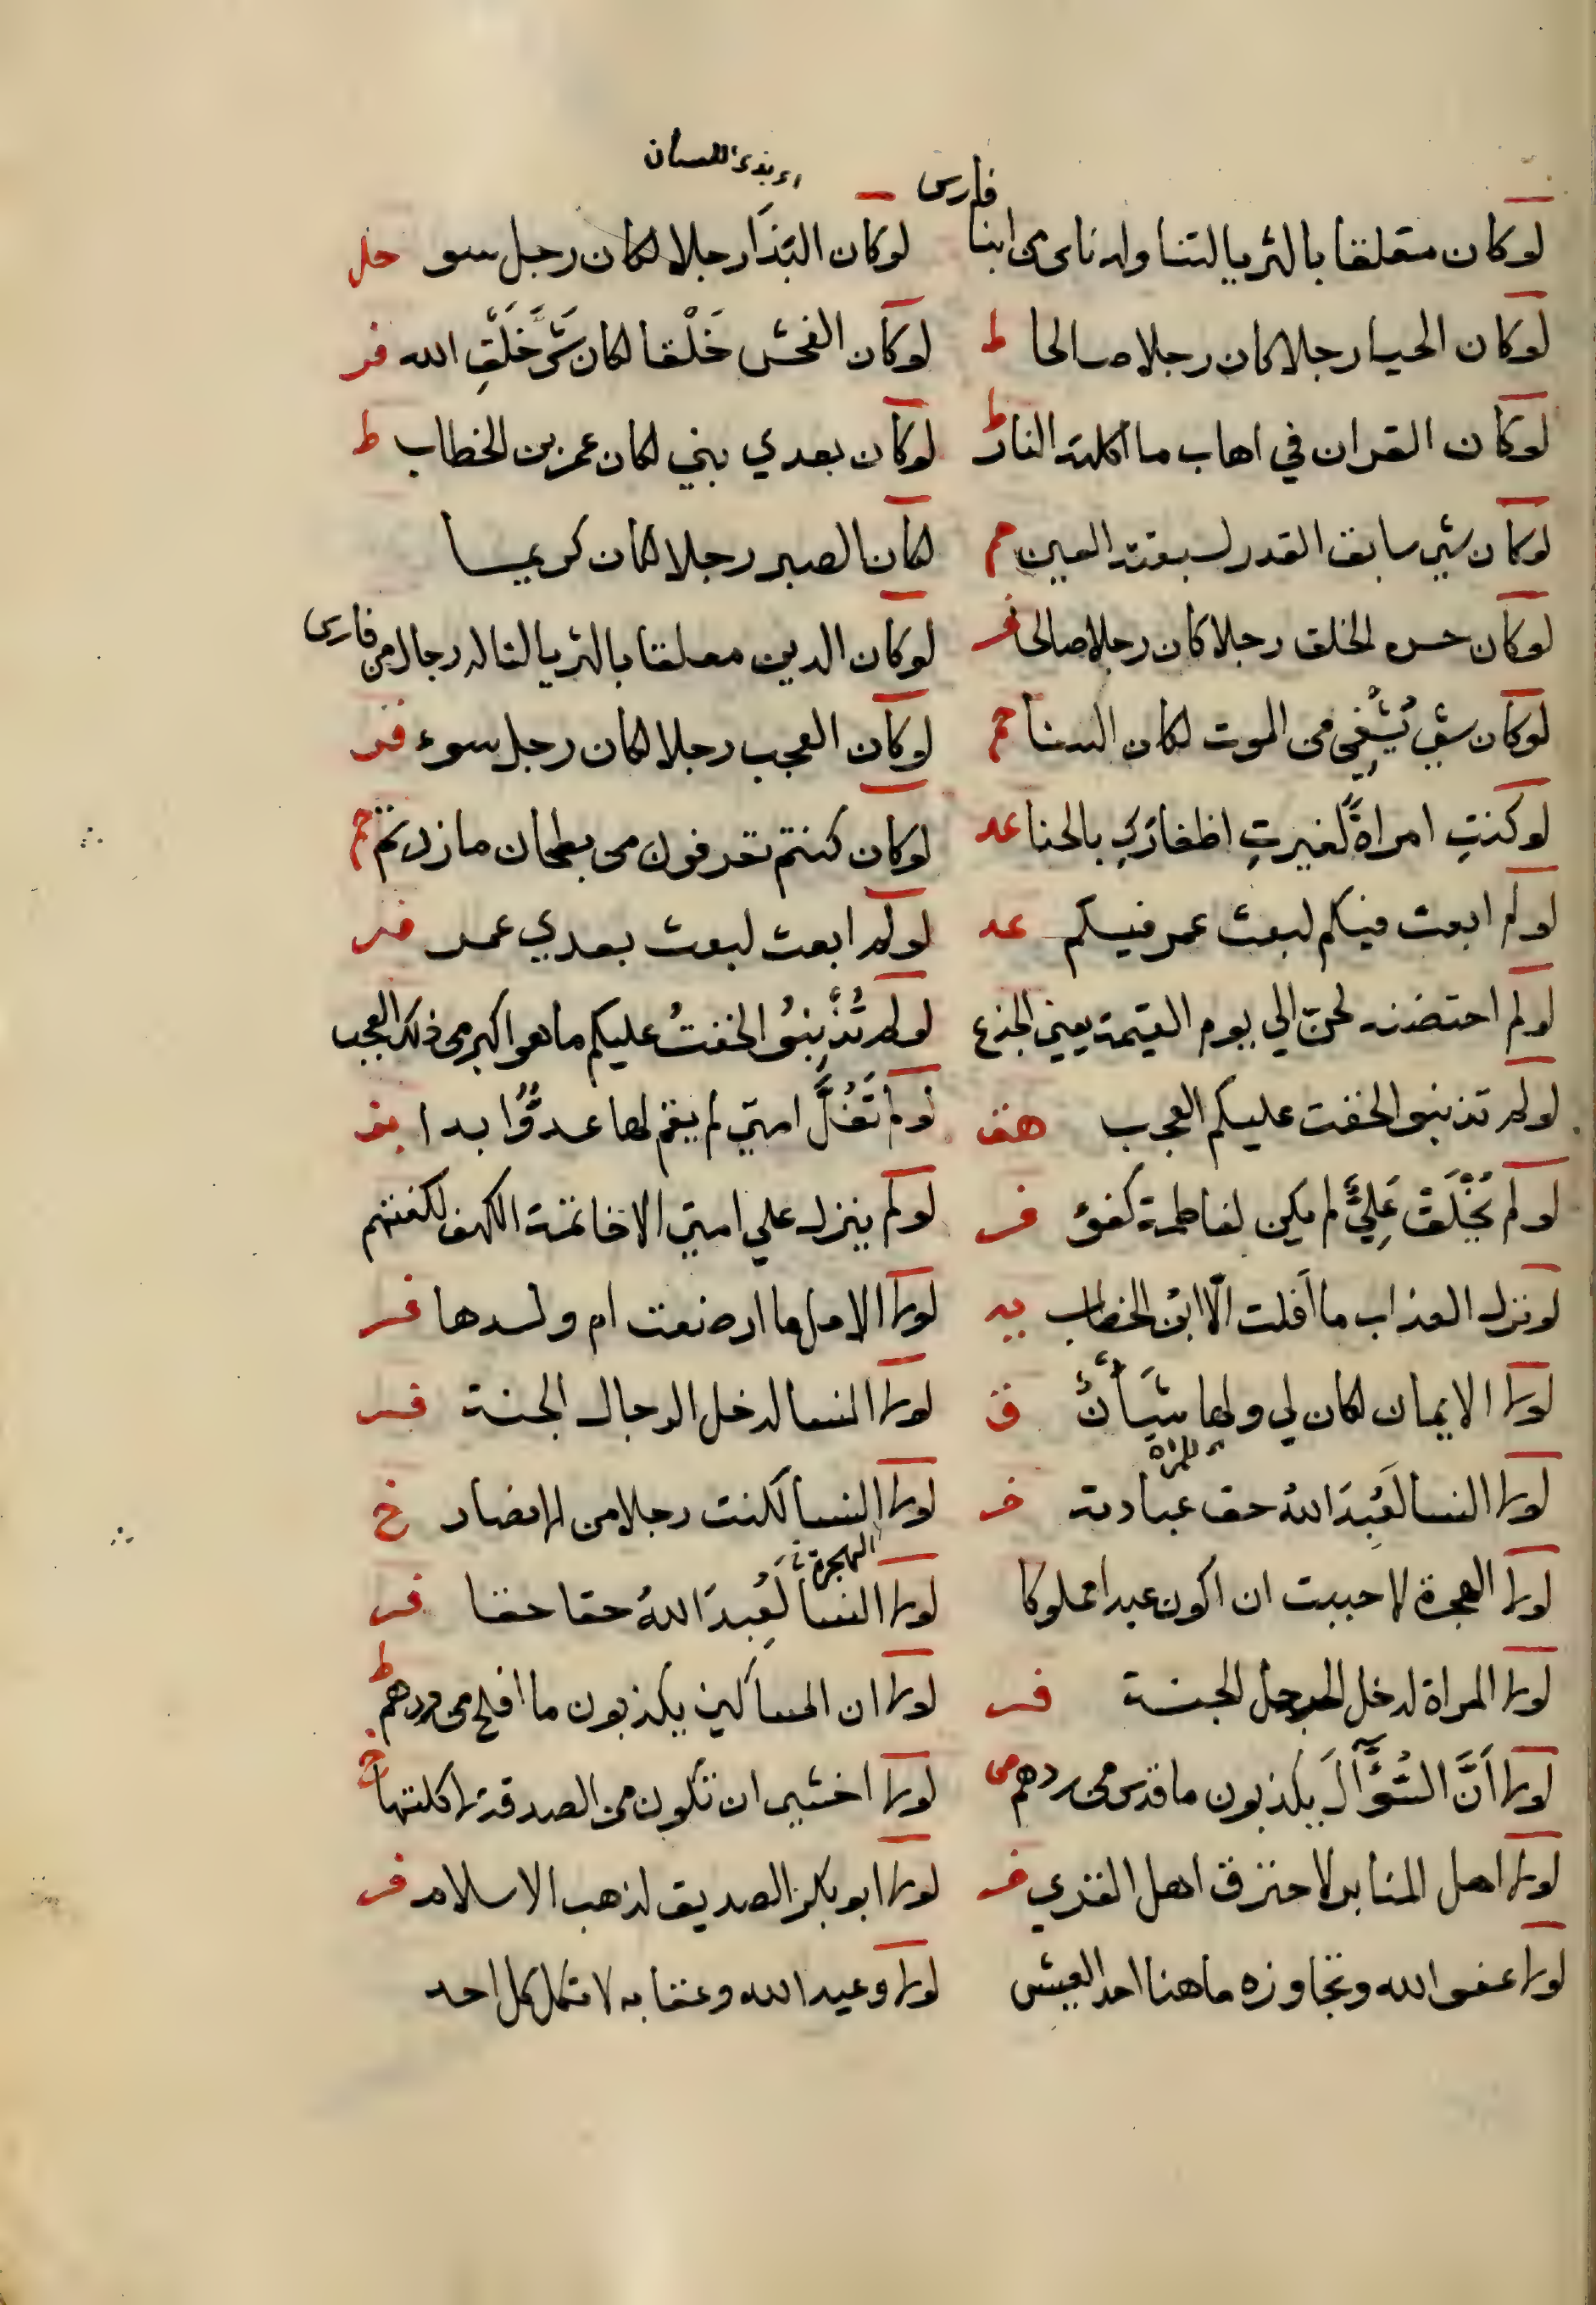 اي بذي اللسان
فارس
لو كان متعلقا بالثريا لتناوله ناس من ابنا لو كان البَذَا رجلا لكان رجل سو حل
لو كان الحيا رجلا لكان رجلا صالحا ط لو كان الفحش خَلْقا لكان شَرَّ خَلْقِ الله فر
لو كان القران في اهاب ما اكلته النار ط لو كان بعدي نبي لكان عمر بن الخطاب ط
لو كان شي سابق القدر لسبقته العين حم لو كان الصبر رجلا لكان كريما
لو كان حسن الخلق رجلا كان رجلا صالحا فر لو كان الدين معلقا بالثريا لناله رجال من فارس
لو كان شي يُشْفِي من الموت لكان السنا حم لو كان العجب رجلا لكان رجل سوء فر
لو كنتِ امراةً لغيرتِ اظفاركِ بالحنا عد لو كان كنتم تغرفون من بطحان ما زدتم حم
لو لم ابعث فيكم لبعث عمر فيكم عد لو لم ابعث لبعث بعدي عمر فر
لو لم احتضنه لحن الي يوم القيمة يعني الجذع لو لم تُذْنِبُوا لخفتُ عليكم ما هو اكبر من ذلك العجب
لو لم تذنبوا لخفت عليكم العجب هق لو لم تَغُلَّ امتي لم يقم لها عدوٌّ ابدا
لو لم يُخْلَقْ عَلِيٌّ لم يكن لفاطمة كفؤ فر لو لم ينزل علي امتي الا خاتمة الكهف لكفتهم
لو نزل العذاب ما افلت الّا ابن الخطاب يه لولا الامل ما ارضعت ام ولدها فر
لولا الايمان لكان لي ولها شَأنٌ ق لولا النسا لدخل الرجال الجنة فر
للمراة
لولا النسا لَعُبِدَ اللهُ حق عبادته فر لولا النسا لكنت رجلا من الانصار خ
الهجرة
لولا الهجرة لاحببت ان اكون عبدا مملوكا لولا النسا لَعُبِدَ اللهُ حقا حقا فر
لولا المراة لدخل الرجل الجنة فر لولا ان المساكين يكذبون ما افلح من ردهم ط
لولا اَنَّ السُّؤَّالَ يكذبون ما قدس من ردهم لولا اخشي ان تكون من الصدقة لاكلتها خ
لولا اهل المنابر لاحترق اهل القري فر لولا ابو بكر الصديق لذهب الاسلام فر
لولا عفو الله وتجاوزه ما هنا احد العيش لولا وعيد الله وعقابه لاتكل كل احد